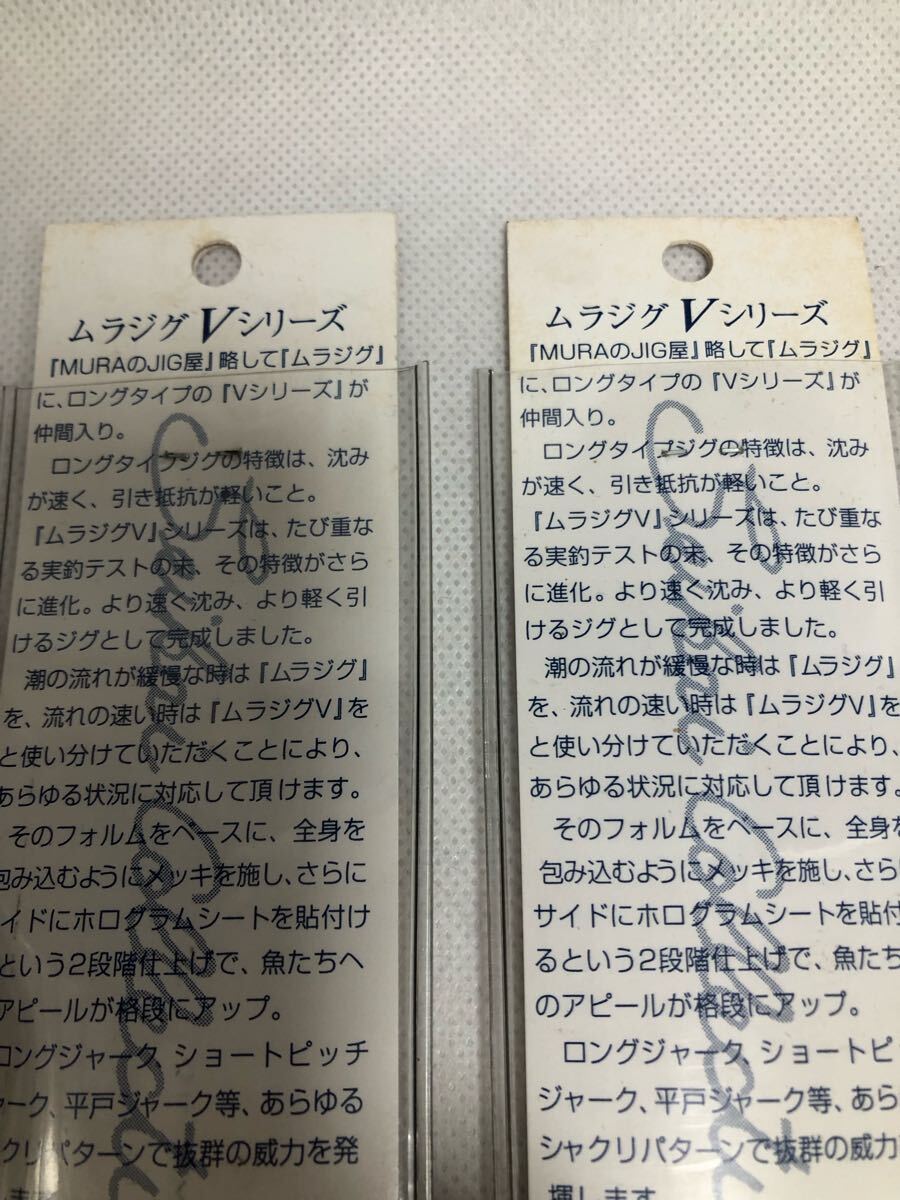 ムラジグVシリーズ
『MURAのJIG屋』略して『ムラジグ』
に、ロングタイプの『Vシリーズ』が
仲間入り。
ロングタイプジグの特徴は、沈み
が速く、引き抵抗が軽いこと。
『ムラジグV』シリーズは、たび重な
る実釣テストの末、その特徴がさら
に進化。より速く沈み、より軽く引
けるジグとして完成しました。
潮の流れが緩慢な時は『ムラジグ』
を、流れの速い時は『ムラジグV』を
と使い分けていただくことにより、
あらゆる状況に対応して頂けます。
そのフォルムをベースに、全身を
包み込むようにメッキを施し、さらに
イドにホログラムシートを貼付け
という2段階仕上げで、魚たちへ
アピールが格段にアップ。
ロングジャーク、ショートピッチ
ャーク、平戸ジャーク等、あらゆる
クリパターンで抜群の威力を発
ムラジグVシリーズ
『MURAのJIG屋』略して『ムラジグ』
に、ロングタイプの『Vシリーズ』が
仲間入り。
ロングタイプジグの特徴は、沈み
が速く、引き抵抗が軽いこと。
『ムラジグV』シリーズは、たび重な
る実釣テストの末、その特徴がさら
に進化。より速く沈み、より軽く引
けるジグとして完成しました。
潮の流れが緩慢な時は『ムラジグ』
を、流れの速い時は『ムラジグV』を
と使い分けていただくことにより、
あらゆる状況に対応して頂けます。
そのフォルムをベースに、全身を
包み込むようにメッキを施し、さら
サイドにホログラムシートを貼付
るという2段階仕上げで、魚たち
のアピールが格段にアップ。
ロングジャーク、ショートピ
ジャーク、平戸ジャーク等、あら
シャクリパターンで抜群の威力
揮します